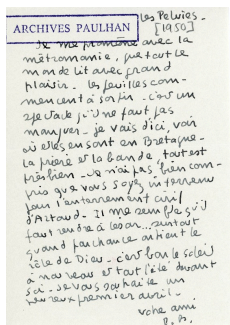 les Pelvies -
ARCHIVES PAULHAN
[1950]
Je me promène avec la
métromanie, que tout le
monde lit avec grand
plaisir. les feuilles com-
mencent à sortir - c'est un
spectacle qu'il ne faut pas
manquer - je vais d'ici, voir
où elles en sont en Bretagne -
la prière et la bande, tout est
très bien - Je n'ai pas bien com-
pris que vous soyez intervenu
pour l'enterrement civil
d'Artaud - Il me semble qu'il
faut rendre à César... surtout
quand par chance on tient le
rôle de Dieu - c'est bon le soleil
à nouveau et tout l'été devant
soi - Je vous souhaite un
heureux premier avril -
votre ami